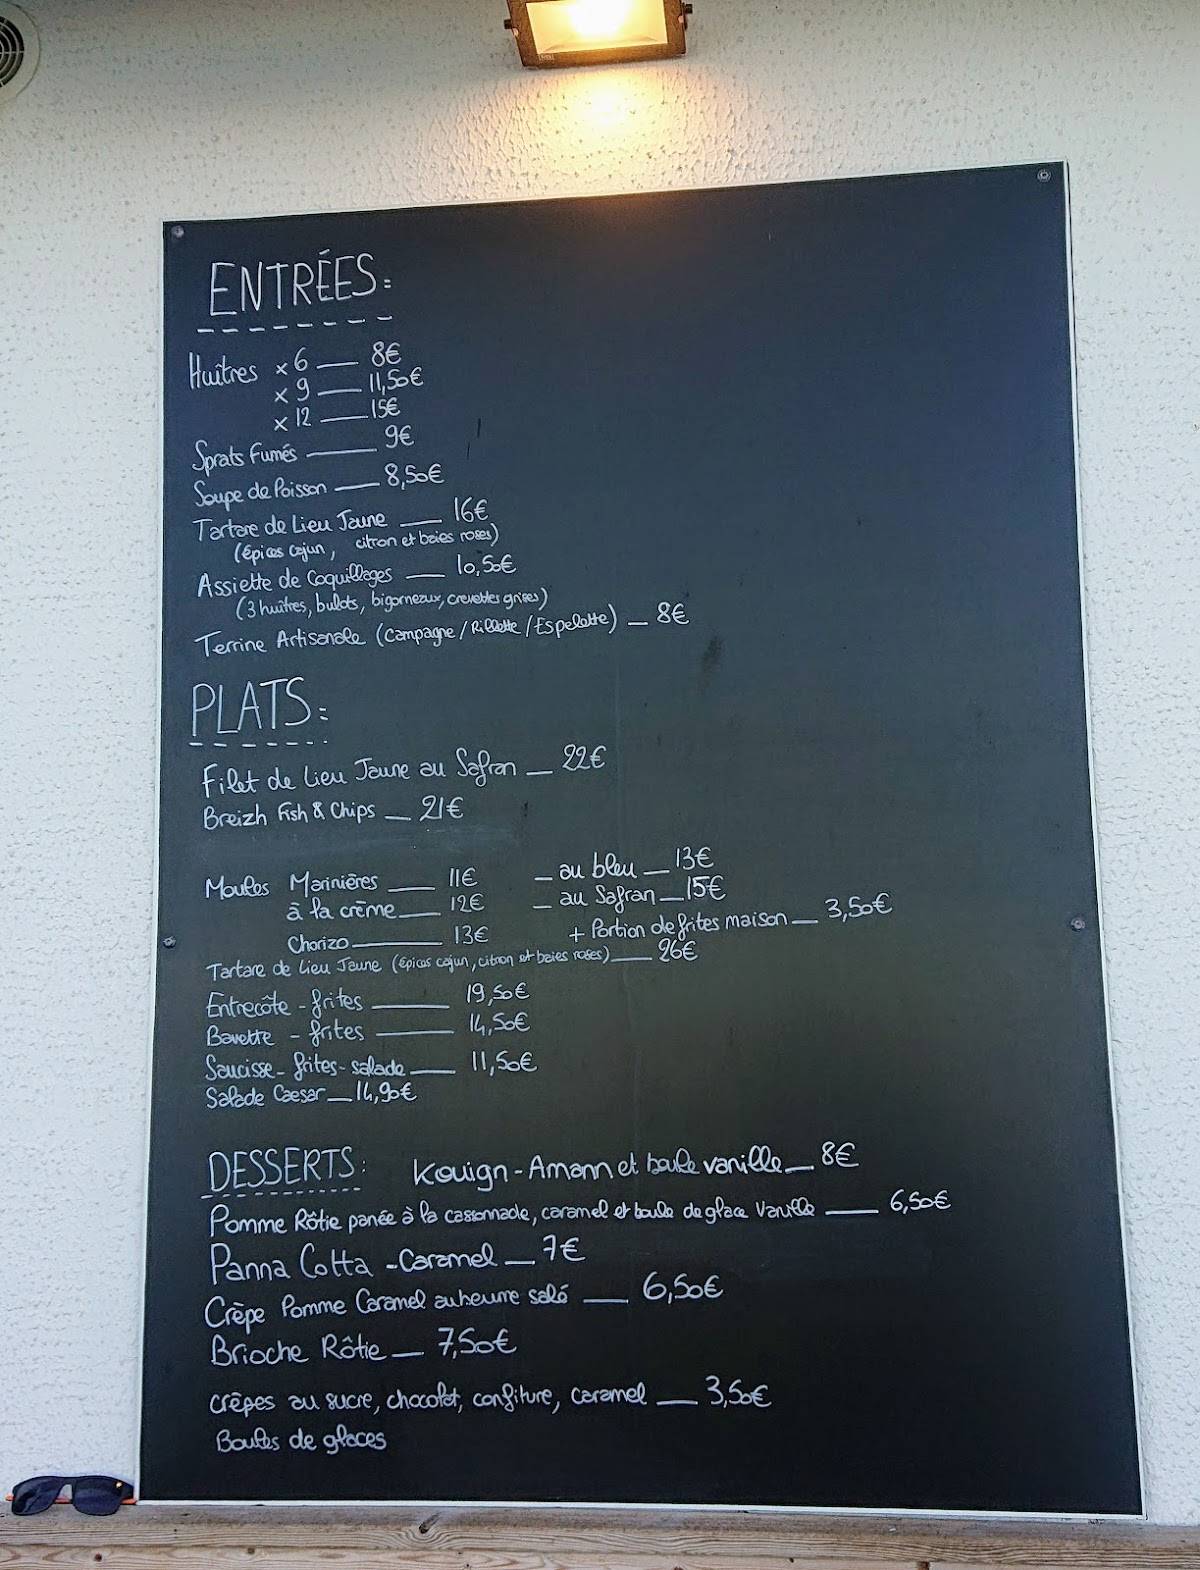 ENTRÉES:
Huîtres x 6 — 8€
x 9 — 11,50€
x 12 — 15€
Sprats Fumés — 9€
Soupe de Poisson — 8,50€
Tartare de Lieu Jaune — 16€
(épices cajun, citron et baies roses)
Assiette de Coquillages — 10,50€
(3 huîtres, bulots, bigorneaux, crevettes grises)
Terrine Artisanale (Campagne/Rillette/Espelette) — 8€
PLATS:
Filet de Lieu Jaune au Safran — 22€
Breizh Fish & Chips — 21€
Moules Marinières — 11€ – au bleu — 13€
à la crème — 12€ – au Safran — 15€
Chorizo — 13€ + Portion de frites maison — 3,50€
Tartare de Lieu Jaune (épices cajun, citron et baies roses) — 26€
Entrecôte - frites — 19,50€
Bavette - frites — 14,50€
Saucisse - frites - salade — 11,50€
Salade Caesar — 14,90€
DESSERTS: Kouign-Amann et boule vanille — 8€
Pomme Rôtie panée à la cassonnade, caramel et boule de glace Vanille — 6,50€
Panna Cotta - Caramel — 7€
Crèpe Pomme Caramel au beurre salé — 6,50€
Brioche Rôtie — 7,50€
crêpes au sucre, chocolat, confiture, caramel — 3,50€
Boules de glaces